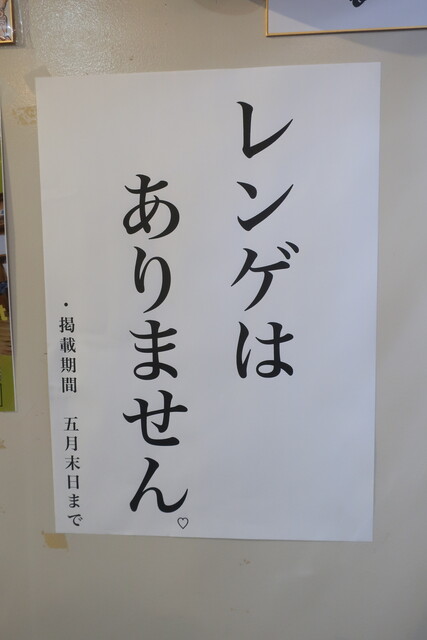 レンゲは
ありません。♡
・掲載期間　五月末日まで